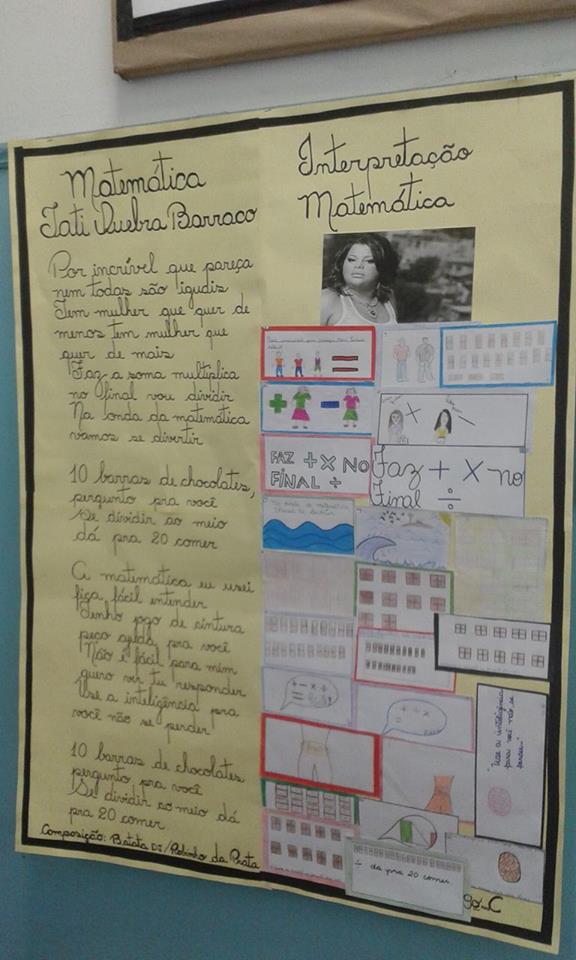 Matemática
Tati Quebra Barraco
Por incrível que pareça
nem todas são ligudis
Tem mulher que quer de
menos tem mulher que
quer de mais
Faz a soma multiplica
no final vou dividir
Na onda da matemática
vamos se divertir
10 barras de chocolates,
pergunto pra você
Se dividir ao meio
dá pra 20 comer
A matemática eu usei
fiça fácil entender
Tenho jogo de cintura
peço ajuda pra você
Não é fácil para mim
quero vir tu responder
Use a inteligência pra
você não se perder
10 barras de chocolates
pergunto pra você
Se dividir ao meio dá
pra 20 comer
Composição: Batata DJ/Robinho da Prata
Interpretação
Matemática
=
+ -
X -
FAZ + X NO
FINAL ÷
Faz + X no
Final ÷
+ - × ÷
=
"Use a inteligência
para você não se
perder"
÷ dá pra 20 comer
9º C